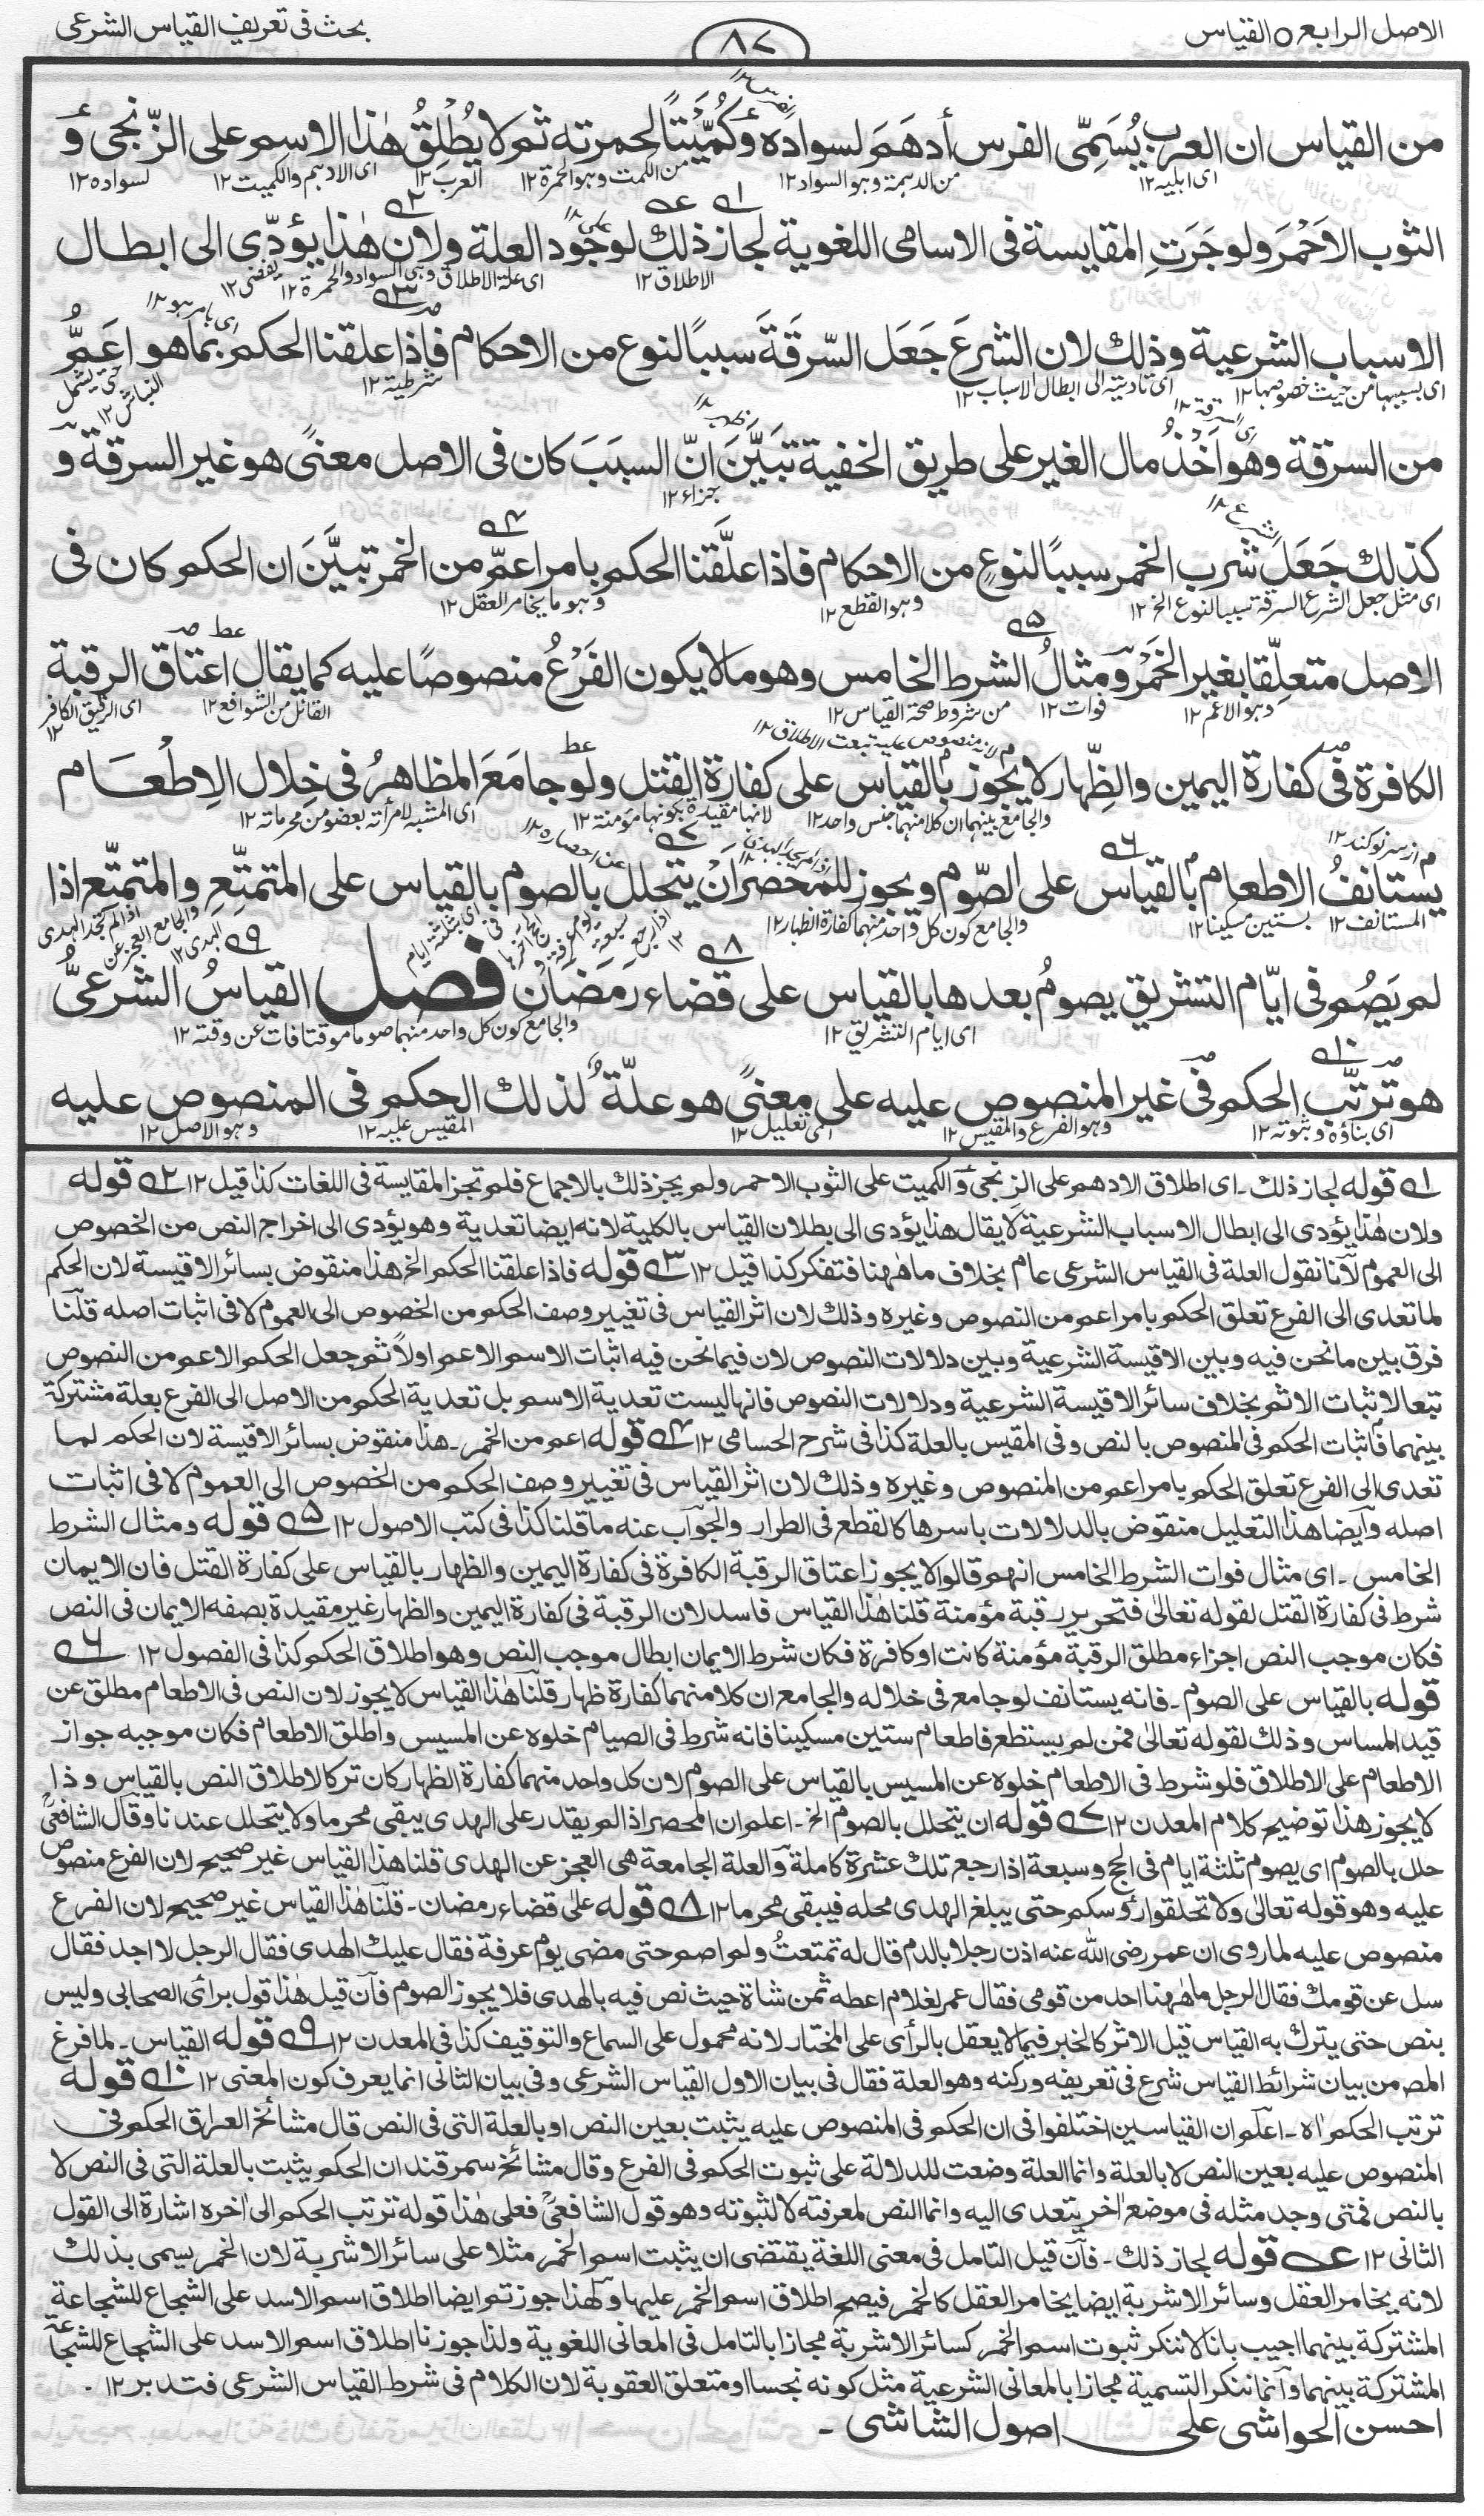 الاصل الرابع ٥ القياس
٨٧
بحث فى تعريف القياس الشرعى
من القياس ان العرب يُسَمِّى الفرس أدهَمَ لسواده وَكُمَيْتًا لحمرته ثم لا يُطْلِقُ هٰذا الاسم على الزّنجى وَ
اى ابلیه ١٢ من الدہمة وہو السواد ١٢ من الکمت وہو الحمرة ١٢ العرب ١٢ اى الادہم والکمیت ١٢ لسواده ١٢
الثوب الاَحْمَر ولو جَرَتِ المقايسة فى الاسامى اللغوية لجاز ذلك لوجود العلة ولان هٰذا يؤدّى الى ابطال
الاطلاق ١٢ اى علة الاطلاق وہى السواد والحمرة ١٢ یفضى ١٢
الاسباب الشرعية وذلك لان الشرعَ جَعَل السّرقَةَ سببًا لنوع من الاحكام فاذا علقنا الحكم بما هو اعَمُّ
اى بسببیہا من حیث خصوصہا ١٢ اى تادیته الى ابطال الاسباب ١٢ شرطیة ١٢ حتى یشمل النباش ١٢
من السرقة وهو اَخْذُ مال الغير على طريق الخفية تبَيَّنَ انّ السبَبَ كان فى الاصل معنًى هو غير السرقة وَ
جزاء ١٢
كذلك جَعَلَ شربَ الخمر سببًا لنوعٍ من الاحكام فاذا علَّقنا الحكم بامر اعمّ من الخمر تبيَّنَ ان الحكم كان فى
اى مثل جعل الشرع السرقة سببا لنوع الخ ١٢ وہو القطع ١٢ وہو ما یخامر العقل ١٢
الاصل متعلّقا بغير الخمر ومثالُ الشرط الخامس وهو ما لا يكون الفَرْعُ منصوصًا عليه كما يقال اعتاق الرقبة
وہو الاعم ١٢ فوات ١٢ من شروط صحة القیاس ١٢ القائل من الشوافع ١٢ اى الرقیق الکافر ١٢
الكافرة فى كفارة اليمين والظِّهار لا يجوز بالقياس على كفارة القتل ولو جامَعَ المظاهرُ فى خِلال الاِطعَام
والجامع بینہما ان کلا منہما جنس واحد ١٢ لانہا مقیدة بکونہا مؤمنة ١٢ اى المشبه لامرأته بعضو من محرماته ١٢
يستانفُ الاطعام بالقياس على الصّوم ويجوز للمحصَر اَنْ يتحلل بالصوم بالقياس على المتمتّع والمتمتّع اذا
المستانف ١٢ بستین مسکینا ١٢ والجامع کون کل واحد منہما کفارة الظہار ١٢
لم يَصُم فى ايّام التشريق يصومُ بعدها بالقياس على قضاء رَمَضَانَ فصل القياسُ الشرعىُّ
اى ایام التشریق ١٢ والجامع کون کل واحد منہما صوما موقتا فات عن وقته ١٢
هو ترتّب الحكم فى غير المنصوص عليه على معنًى هو علّةٌ لذلك الحكم فى المنصوص عليه
اى بناؤه وثبوته ١٢ وہو الفرع والمقیس ١٢ اى تعلیل ١٢ المقیس علیه ١٢ وہو الاصل ١٢
١ قوله لجاز ذلك ۔ اى اطلاق الادهم على الزنجى والكميت على الثوب الاحمر ولم يجز ذلك بالاجماع فلم تجز المقايسة فى اللغات كذا قيل ١٢ ٢ قوله
ولان هٰذا يؤدى الى ابطال الاسباب الشرعية لا يقال هذا يؤدى الى بطلان القياس بالكلية لانه ايضا تعدية وهو يؤدى الى اخراج النص من الخصوص
الى العموم لانا نقول العلة فى القياس الشرعى عام بخلاف ما هٰهنا فتفكر كذا قيل ١٢ ٣ قوله فاذا علقنا الحكم الخ هذا منقوض بسائر الاقيسة لان الحكم
لما تعدى الى الفرع تعلق الحكم بامر اعم من النصوص وغيره وذلك لان اثر القياس فى تغيير وصف الحكم من الخصوص الى العموم لا فى اثبات اصله قلنا
فرق بين ما نحن فيه وبين الاقيسة الشرعية وبين دلالات النصوص لان فيما نحن فيه اثبات الاسم الاعم اولاً ثم جعل الحكم الاعم من النصوص
تبعا لاثبات الاثم بخلاف سائر الاقيسة الشرعية ودلالات النصوص فانها ليست تعدية الاسم بل تعدية الحكم من الاصل الى الفرع بعلة مشتركة
بينهما فاثبات الحكم فى المنصوص بالنص وفى المقيس بالعلة كذا فى شرح الحسامى ١٢ ٤ قوله اعم من الخمر ۔ هذا منقوض بسائر الاقيسة لان الحكم لما
تعدى الى الفرع تعلق الحكم بامر اعم من المنصوص وغيره وذلك لان اثر القياس فى تغيير وصف الحكم من الخصوص الى العموم لا فى اثبات
اصله وايضا هذا التعليل منقوض بالدلالات باسرها كالقطع فى الطرار والجواب عنه ما قلنا كذا فى كتب الاصول ١٢ ٥ قوله ومثال الشرط
الخامس ۔ اى مثال فوات الشرط الخامس انهم قالوا لا يجوز اعتاق الرقبة الكافرة فى كفارة اليمين والظهار بالقياس على كفارة القتل فان الايمان
شرط فى كفارة القتل لقوله تعالىٰ فتحرير رقبة مؤمنة قلنا هٰذا القياس فاسد لان الرقبة فى كفارة اليمين والظهار غير مقيدة بصفه الايمان فى النص
فكان موجب النص اجزاء مطلق الرقبة مؤمنة كانت او كافرة فكان شرط الايمان ابطال موجب النص وهو اطلاق الحكم كذا فى الفصول ١٢ ٦
قوله بالقياس على الصوم ۔ فانه يستانف لو جامع فى خلاله والجامع ان كلا منهما كفارة ظهار قلنا هٰذا القياس لا يجوز لان النص فى الاطعام مطلق عن
قيد المساس وذلك لقوله تعالىٰ فمن لم يستطع فاطعام ستين مسكينا فانه شرط فى الصيام خلوه عن المسيس واطلق الاطعام فكان موجبه جواز
الاطعام على الاطلاق فلو شرط فى الاطعام خلوه عن المسيس بالقياس على الصوم لان كل واحد منهما كفارة الظهار كان تركا لاطلاق النص بالقياس وذا
لا يجوز هذا توضيح كلام المعدن ١٢ ٧ قوله ان يتحلل بالصوم الخ ۔ اعلم ان المحصر اذا لم يقدر على الهدى يبقى محرما ولا يتحلل عندنا وقال الشافعىؒ
حلل بالصوم اى يصوم ثلثة ايام فى الحج وسبعة اذا رجع تلك عشرة كاملة والعلة الجامعة هى العجز عن الهدى قلنا هذا القياس غير صحيح لان الفرع منصوص
عليه وهو قوله تعالىٰ ولا تحلقوا رؤسكم حتى يبلغ الهدى محله فيبقى محرما ١٢ ٨ قوله علىٰ قضاء رمضان ۔ قلنا هٰذا القياس غير صحيح لان الفرع
منصوص عليه لما روى ان عمر رضى الله عنه اذن رجلا بالدم قال له تمتعتُ ولم اصم حتى مضى يوم عرفة فقال عليك الهدى فقال الرجل لا اجد فقال
سل عن قومك فقال الرجل ما هٰهنا احد من قومى فقال عمر لغلام اعطه ثمن شاة حيث نص فيه بالهدى فلا يجوز الصوم فان قيل هٰذا قول برأى الصحابى وليس
بنص حتى يترك به القياس قيل الاثر كالخبر فيما لا يعقل بالرأى على المختار لانه محمول على السماع والتوقيف كذا فى المعدن ١٢ ٩ قوله القياس ۔ لما فرغ
المص من بيان شرائط القياس شرع فى تعريفه وركنه وهو العلة فقال فى بيان الاول القياس الشرعى وفى بيان الثانى انما يعرف كون المعنى ١٢ ١٠ قوله
ترتب الحكم اه ۔ اعلم ان القياسين اختلفوا فى ان الحكم فى المنصوص عليه يثبت بعين النص او بالعلة التى فى النص قال مشائخ العراق الحكم فى
المنصوص عليه بعين النص لا بالعلة وانما العلة وضعت للدلالة على ثبوت الحكم فى الفرع وقال مشائخ سمرقند ان الحكم يثبت بالعلة التى فى النص لا
بالنص فمتى وجد مثله فى موضع اٰخر يتعدى اليه وانما النص لمعرفته لا لثبوته وهو قول الشافعىؒ فعلى هٰذا قوله ترتب الحكم الى اٰخره اشارة الى القول
الثانى ١٢ عـه قوله لجاز ذلك ۔ فان قيل التامل فى معنى اللغة يقتضى ان يثبت اسم الخمر مثلا على سائر الاشربة لان الخمر يسمى بذلك
لانه يخامر العقل وسائر الاشربة ايضا يخامر العقل كالخمر فيصح اطلاق اسم الخمر عليها ولهذا جوزتم ايضا اطلاق اسم الاسد على الشجاع للشجاعة
المشتركة بينهما اجيب بانا لا ننكر ثبوت اسم الخمر كسائر الاشربة مجازا بالتامل فى المعانى اللغوية ولذا جوزنا اطلاق اسم الاسد على الشجاع للشجاعة
المشتركة بينهما وانما ننكر التسمية مجازا بالمعانى الشرعية مثل كونه نجسا او متعلق العقوبة لان الكلام فى شرط القياس الشرعى فتدبر ١٢ ۔
احسن الحواشى على اصول الشاشى ۔